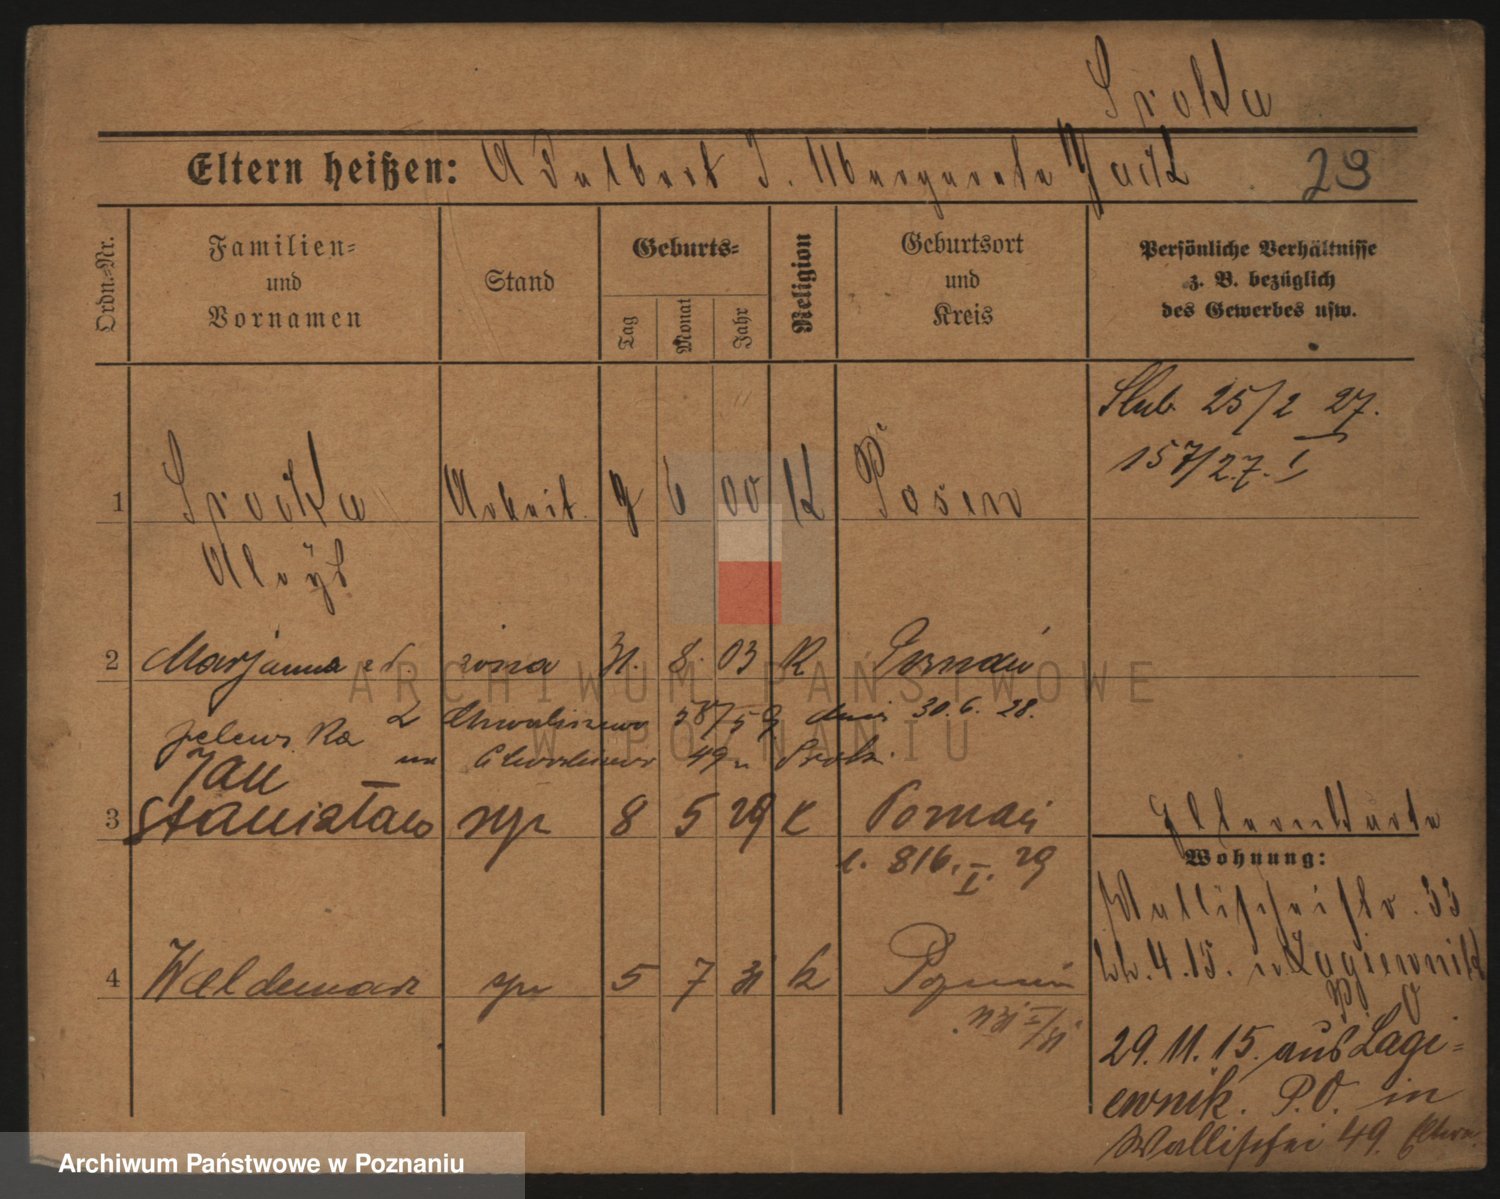 Sroka
Eltern heißen: Adalbert S. Margarete Jack 29
Ordn.-Nr.
Familien-
und
Vornamen
Stand
Geburts-
Tag
Monat
Jahr
Religion
Geburtsort
und
Kreis
Persönliche Verhältnisse
z. B. bezüglich
des Gewerbes usw.
Ślub 25/2 27.
157/27. I
1 Srocka Arbeit. 9 6 00 K Posen
Aloys
2 Marjanna z d. żona 31. 8. 03 K Poznań
Z Chwaliszewo dnia 30. 6. 28.
na Chwaliszewo 49
Jan
3 Stanisław syn 8 5 29 K Poznań
l. 816. I. 29
Elternkarte
Wohnung:
Wallischeistr. 33
4. 15. Lagiewnik
P O
4 Waldemar syn 5 7 31 k Poznań
29. 11. 15. aus Lagi-
ewnik. P.O. in
Wallischei 49.
ARCHIWUM PAŃSTWOWE
W POZNANIU
Archiwum Państwowe w Poznaniu